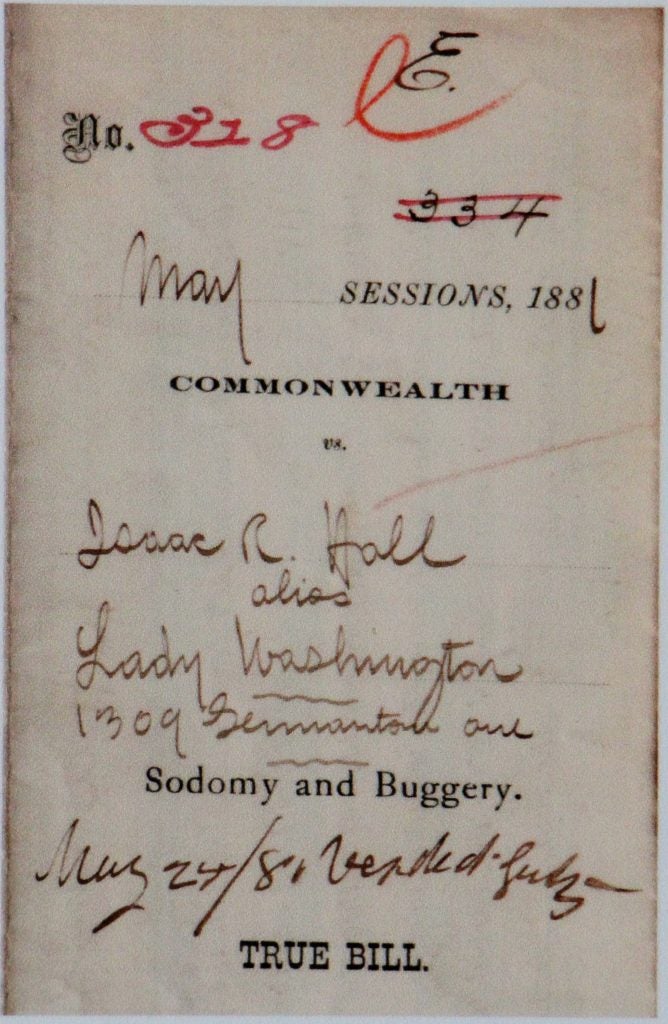 E.
No. 318
334
May SESSIONS, 1881
COMMONWEALTH
vs.
Isaac R. Hall
alias
Lady Washington
1309 Germantou ave
Sodomy and Buggery.
May 24/81 Verdict Guilty
TRUE BILL.